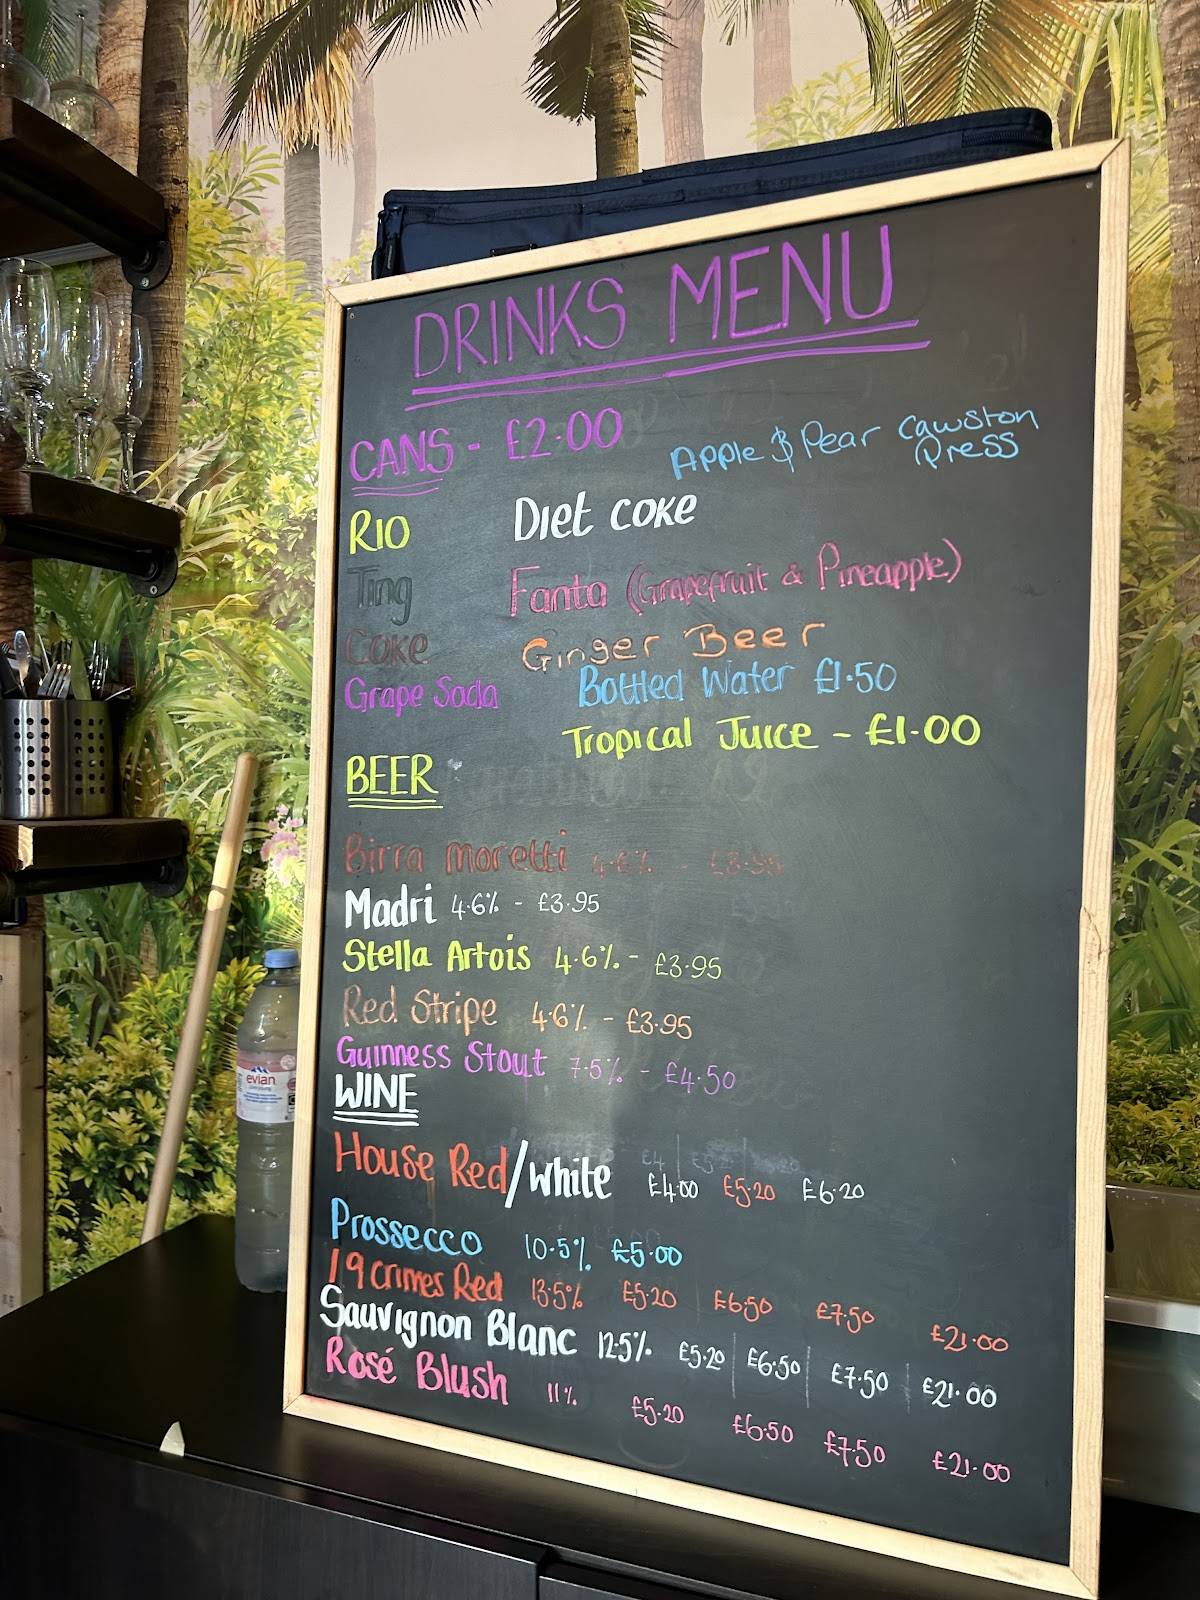 DRINKS MENU
CANS - £2.00
Apple & Pear Cawston Press
RIO
Diet Coke
Ting
Fanta (Grapefruit & Pineapple)
Coke
Ginger Beer
Grape Soda
Bottled Water £1.50
Tropical Juice - £1.00
BEER
Birra Moretti 4.6% - £3.95
Madri 4.6% - £3.95
Stella Artois 4.6% - £3.95
Red Stripe 4.6% - £3.95
Guinness Stout 7.5% - £4.50
WINE
House Red/White £4.00 £5.20 £6.20
Prossecco 10.5% £5.00
19 Crimes Red 13.5% £5.20 £6.50 £7.50 £21.00
Sauvignon Blanc 12.5% £5.20 | £6.50 | £7.50 | £21.00
Rosé Blush 11% £5.20 £6.50 £7.50 £21.00
evian